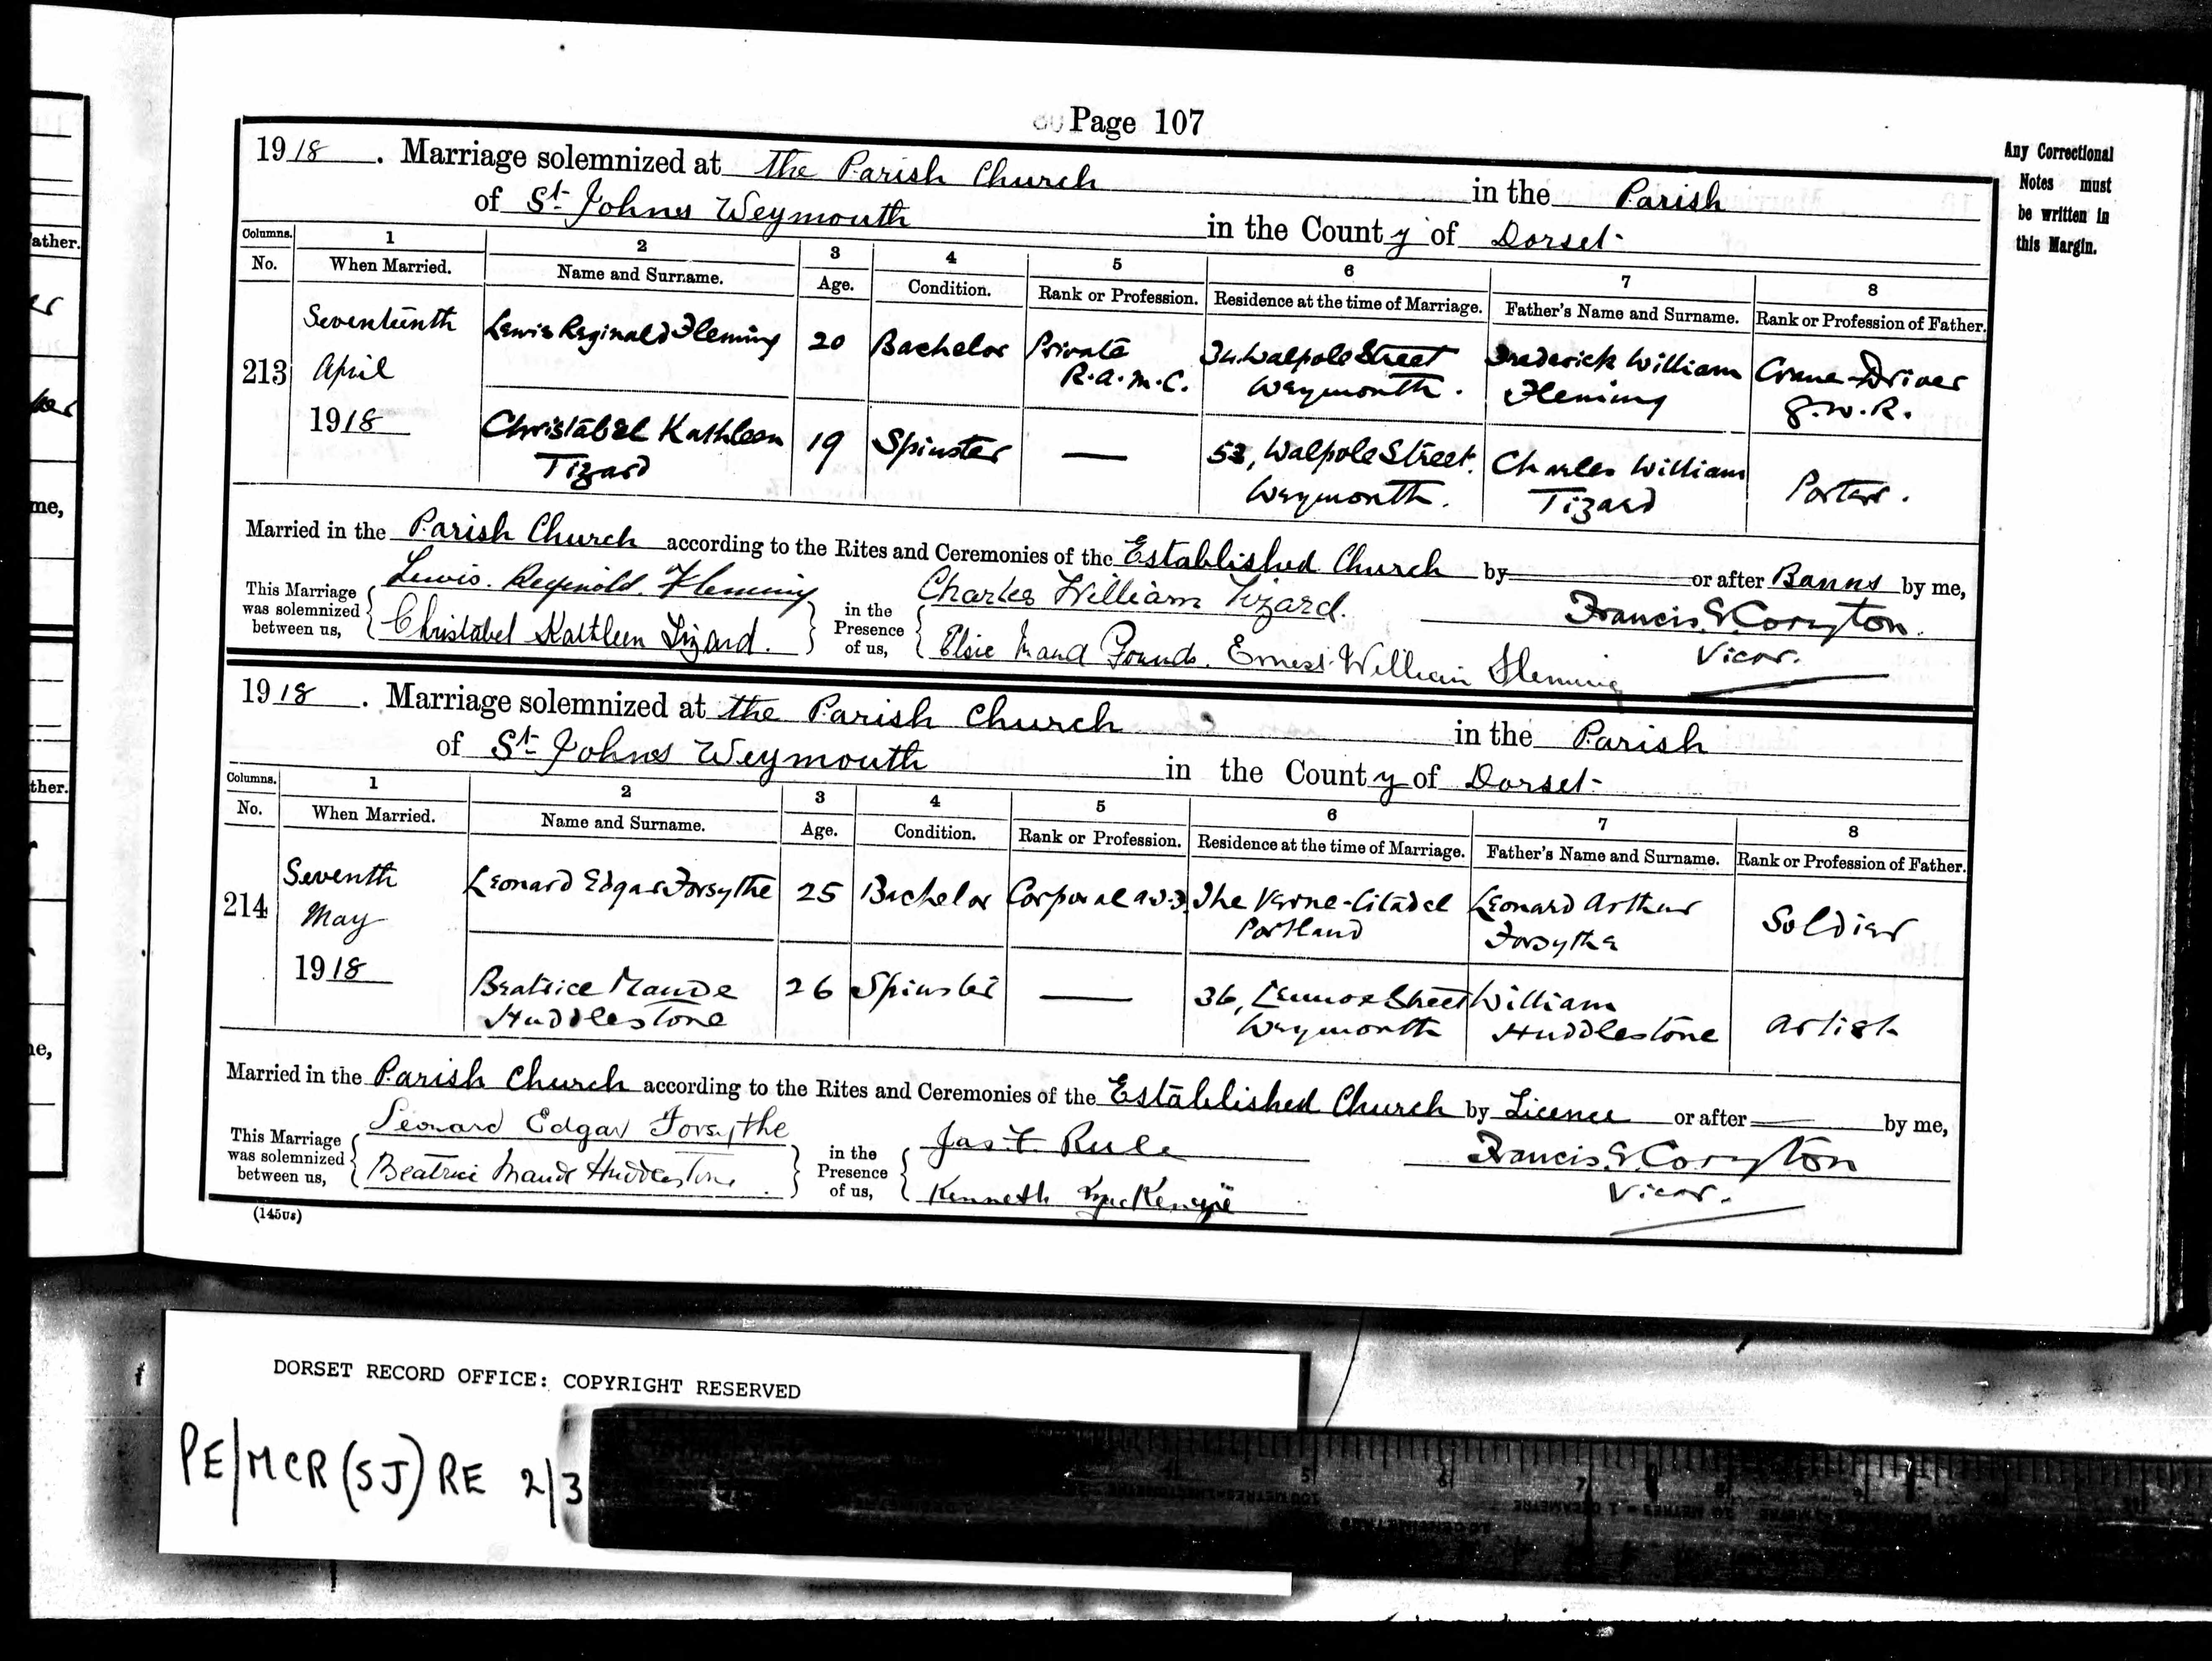 Page 107
Any Correctional
Notes must
be written in
this Margin.
1918. Marriage solemnized at The Parish Church in the Parish
of St Johns Weymouth in the County of Dorset
Columns. 1 2 3 4 5 6 7 8
No. When Married. Name and Surname. Age. Condition. Rank or Profession. Residence at the time of Marriage. Father's Name and Surname. Rank or Profession of Father.
213 Seventeenth April 1918 Lewis Reginald Fleming 20 Bachelor Private R.A.M.C. Walpole Street Weymouth. Frederick William Fleming Crane-Driver G.W.R.
Christabel Kathleen Tizard 19 Spinster — 53, Walpole Street. Weymouth. Charles William Tizard Porter.
Married in the Parish Church according to the Rites and Ceremonies of the Established Church by — or after Banns by me,
This Marriage was solemnized between us, Lewis. Reginold. Fleming
Christabel Kathleen Tizard.
in the Presence of us, Charles William Tizard.
Elsie Maud Pounds. Ernest William Fleming
Francis G. Coryton.
Vicar.
1918. Marriage solemnized at the Parish Church in the Parish
of St Johns Weymouth in the County of Dorset
Columns. 1 2 3 4 5 6 7 8
No. When Married. Name and Surname. Age. Condition. Rank or Profession. Residence at the time of Marriage. Father's Name and Surname. Rank or Profession of Father.
214 Seventh May 1918 Leonard Edgar Forsythe 25 Bachelor Corporal The Verne-Citadel Portland Leonard Arthur Forsythe Soldier
Beatrice Maude Huddlestone 26 Spinster — 36, Lennox Street Weymouth William Huddlestone Artist
Married in the Parish Church according to the Rites and Ceremonies of the Established Church by Licence or after — by me,
This Marriage was solemnized between us, Leonard Edgar Forsythe
Beatrice Maude Huddlestone
in the Presence of us, Jas. F. Rule
Kenneth MacKenzie
Francis G. Coryton
Vicar.
DORSET RECORD OFFICE: COPYRIGHT RESERVED
PE/MCR(SJ) RE 2/3